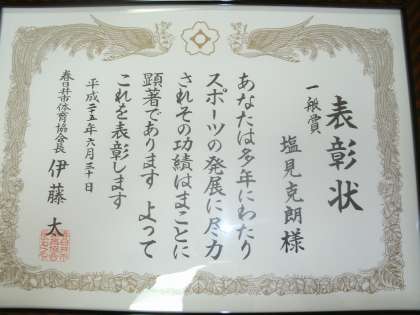 表彰状
一般賞
塩見克朗様
あなたは多年にわたり
スポーツの発展に尽力
されその功績はまことに
顕著であります よって
これを表彰します
平成二十五年六月三十日
春日井市体育協会長 伊藤 太